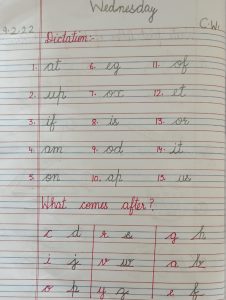 Wednesday
9.2.22 C.W.
Dictation:-
1. at 6. eg 11. of
2. up 7. ox 12. et
3. if 8. is 13. or
4. am 9. od 14. it
5. on 10. ap 15. us
What comes after?
c d r s g h
i j v w a b
o p y z e f